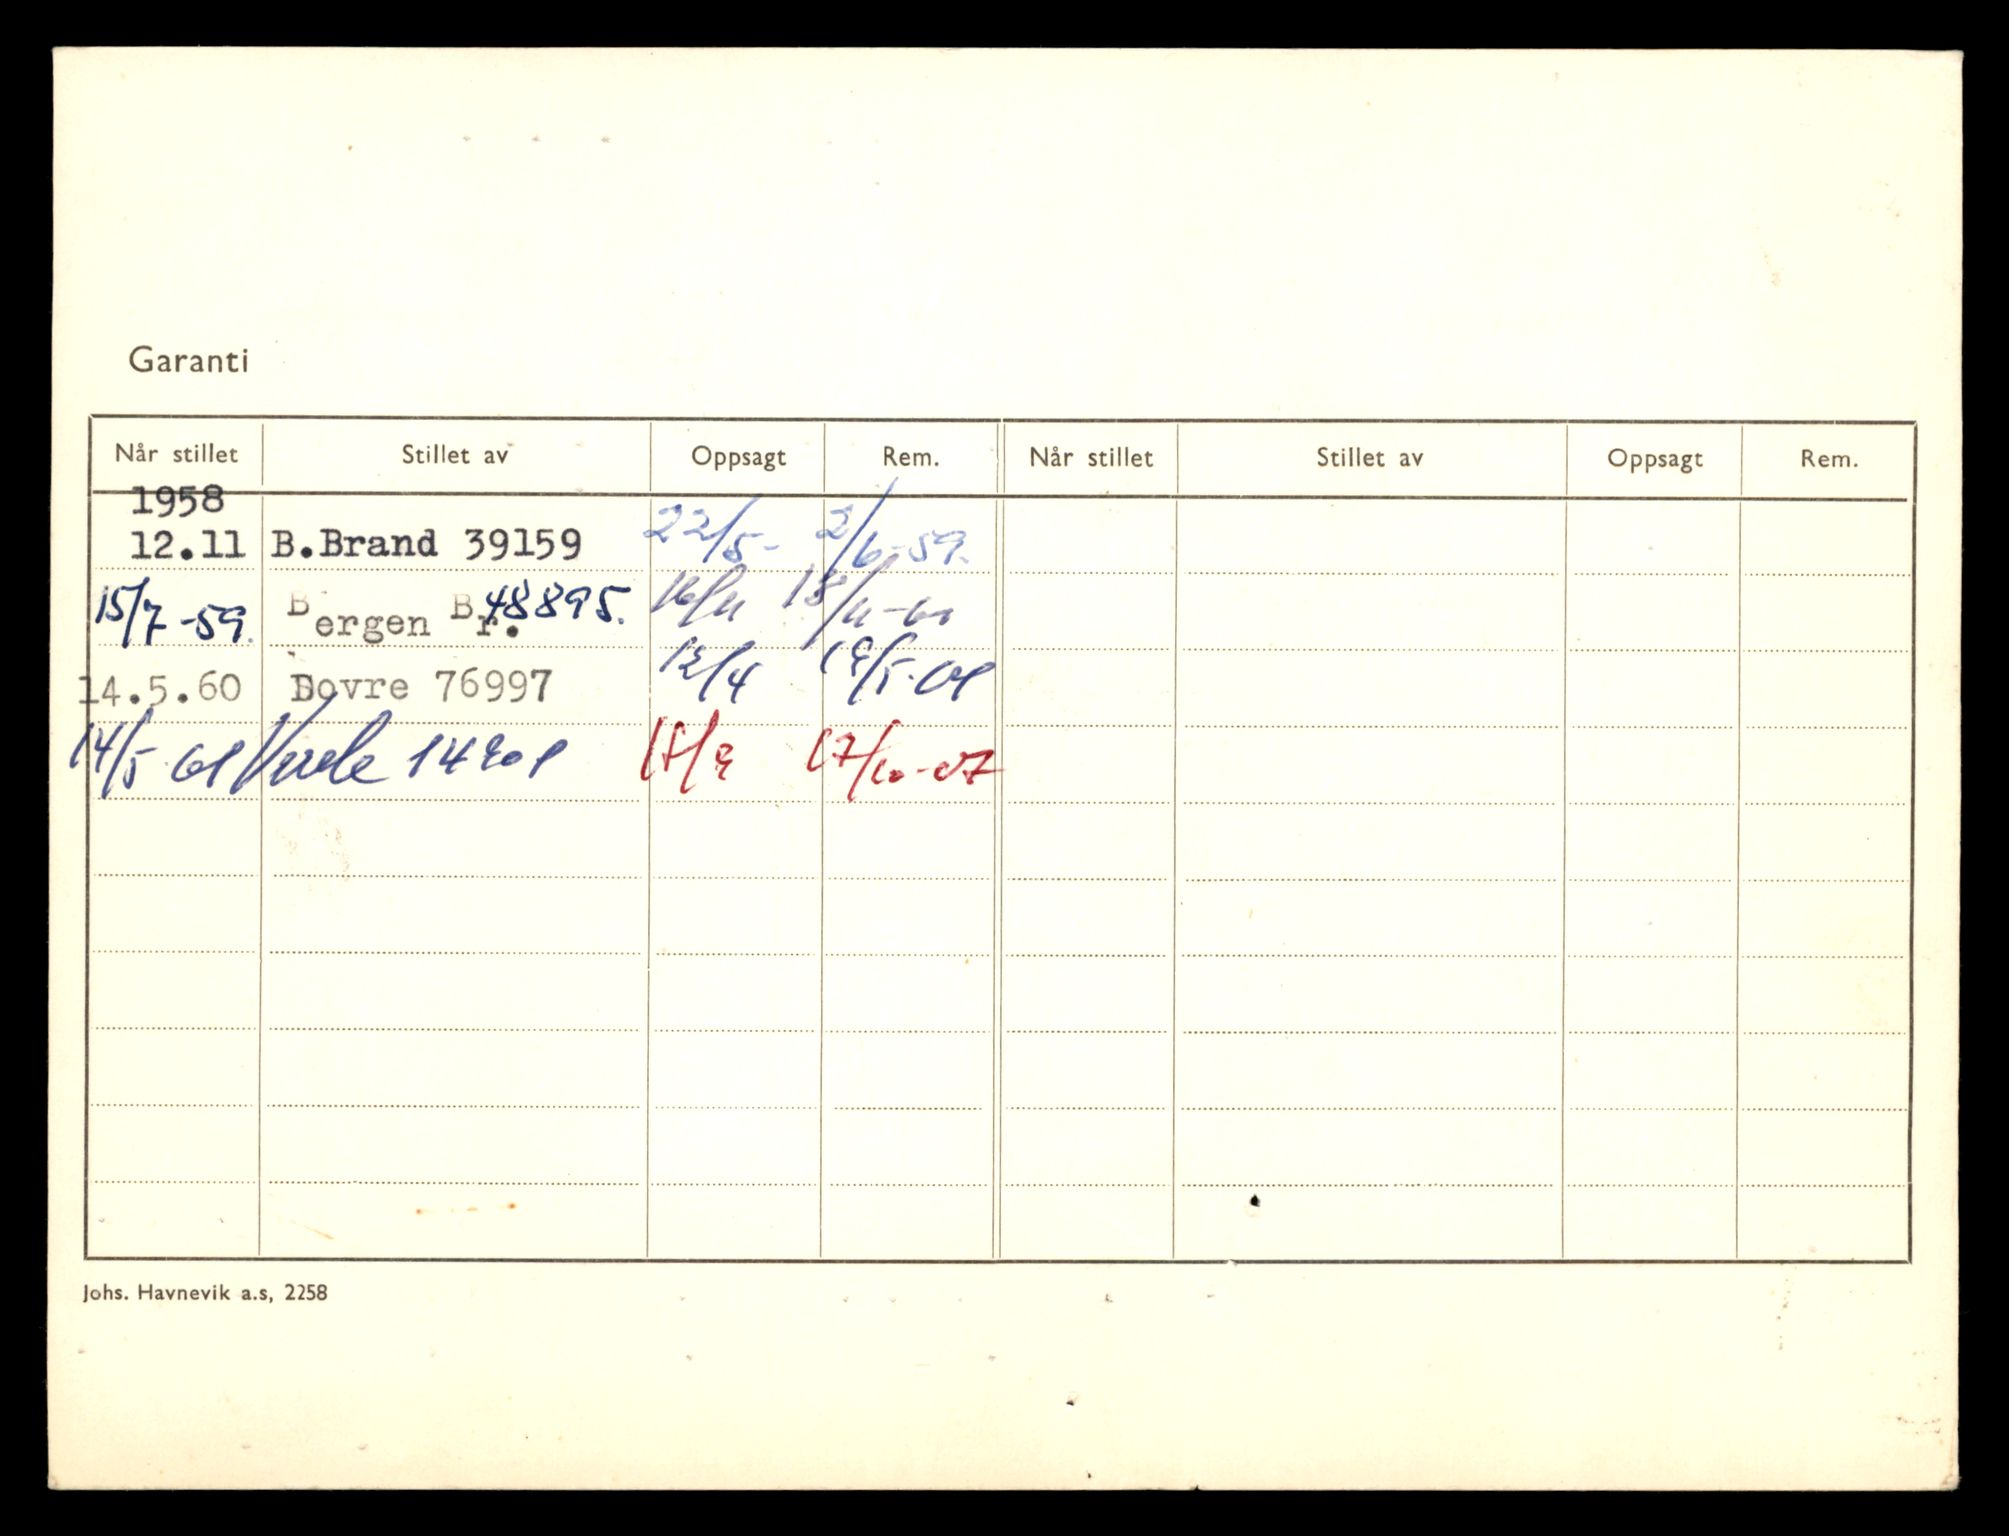 Garanti
Når stillet Stillet av Oppsagt Rem. Når stillet Stillet av Oppsagt Rem.
1958
12.11 B.Brand 39159 22/5- 2/6-59.
15/7-59. Bergen Br. 48895. 16/11 18/11-60
14.5.60 Dovre 76997 12/4
14/5 17/10-67
Johs. Havnevik a.s, 2258